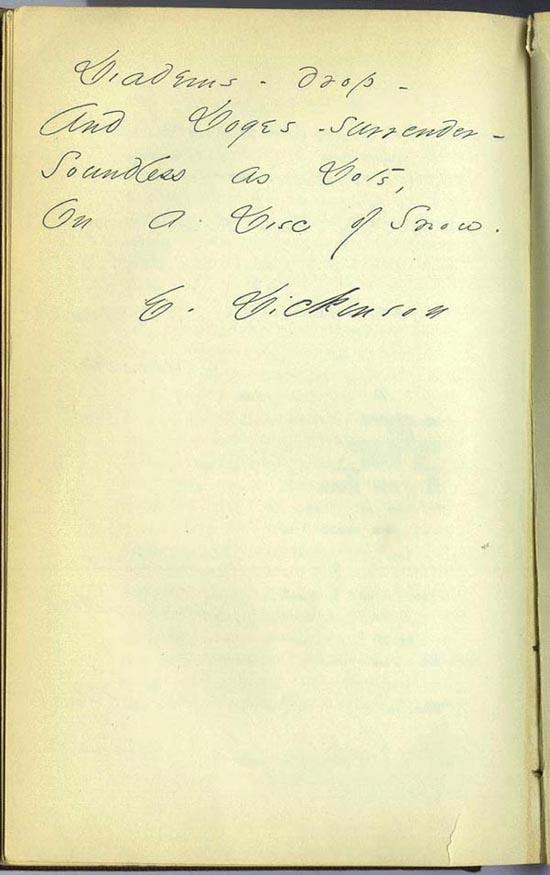 Diadems - drop -
And Doges - surrender -
Soundless as Dots,
On a Disc of Snow.
E. Dickinson